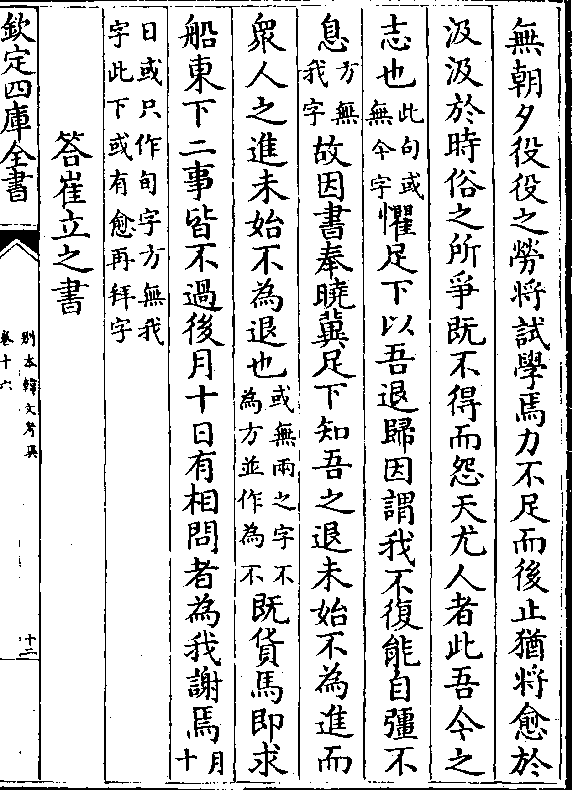 無朝夕役役之勞將試學焉力不足而後止猶將愈於
汲汲於時俗之所爭既不得而怨天尤人者此吾今之
志也此句或無今字懼足下以吾退歸因謂我不復能自彊不
息方無我字故因書奉曉冀足下知吾之退未始不為進而
衆人之進未始不為退也或無兩之字不為方並作為不既貨馬即求
船東下二事皆不過後月十日有相問者為我謝焉月十
日或只作旬字方無我字此下或有愈再拜字
答崔立之書
欽定四庫全書
别本韓文考異
卷十六
十二